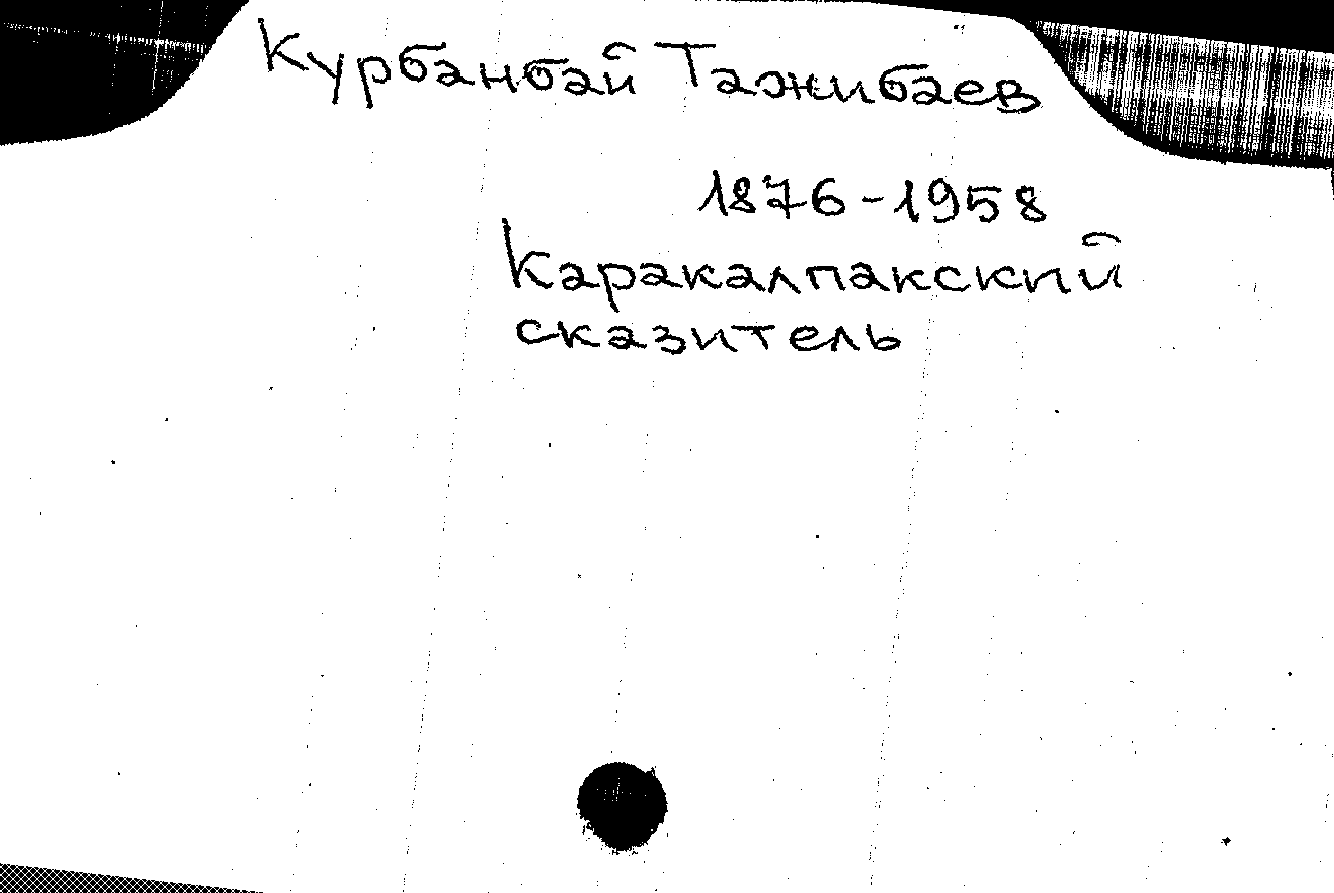 Курбанбай Тажибаев
1876-1958
Каракалпакский
сказитель